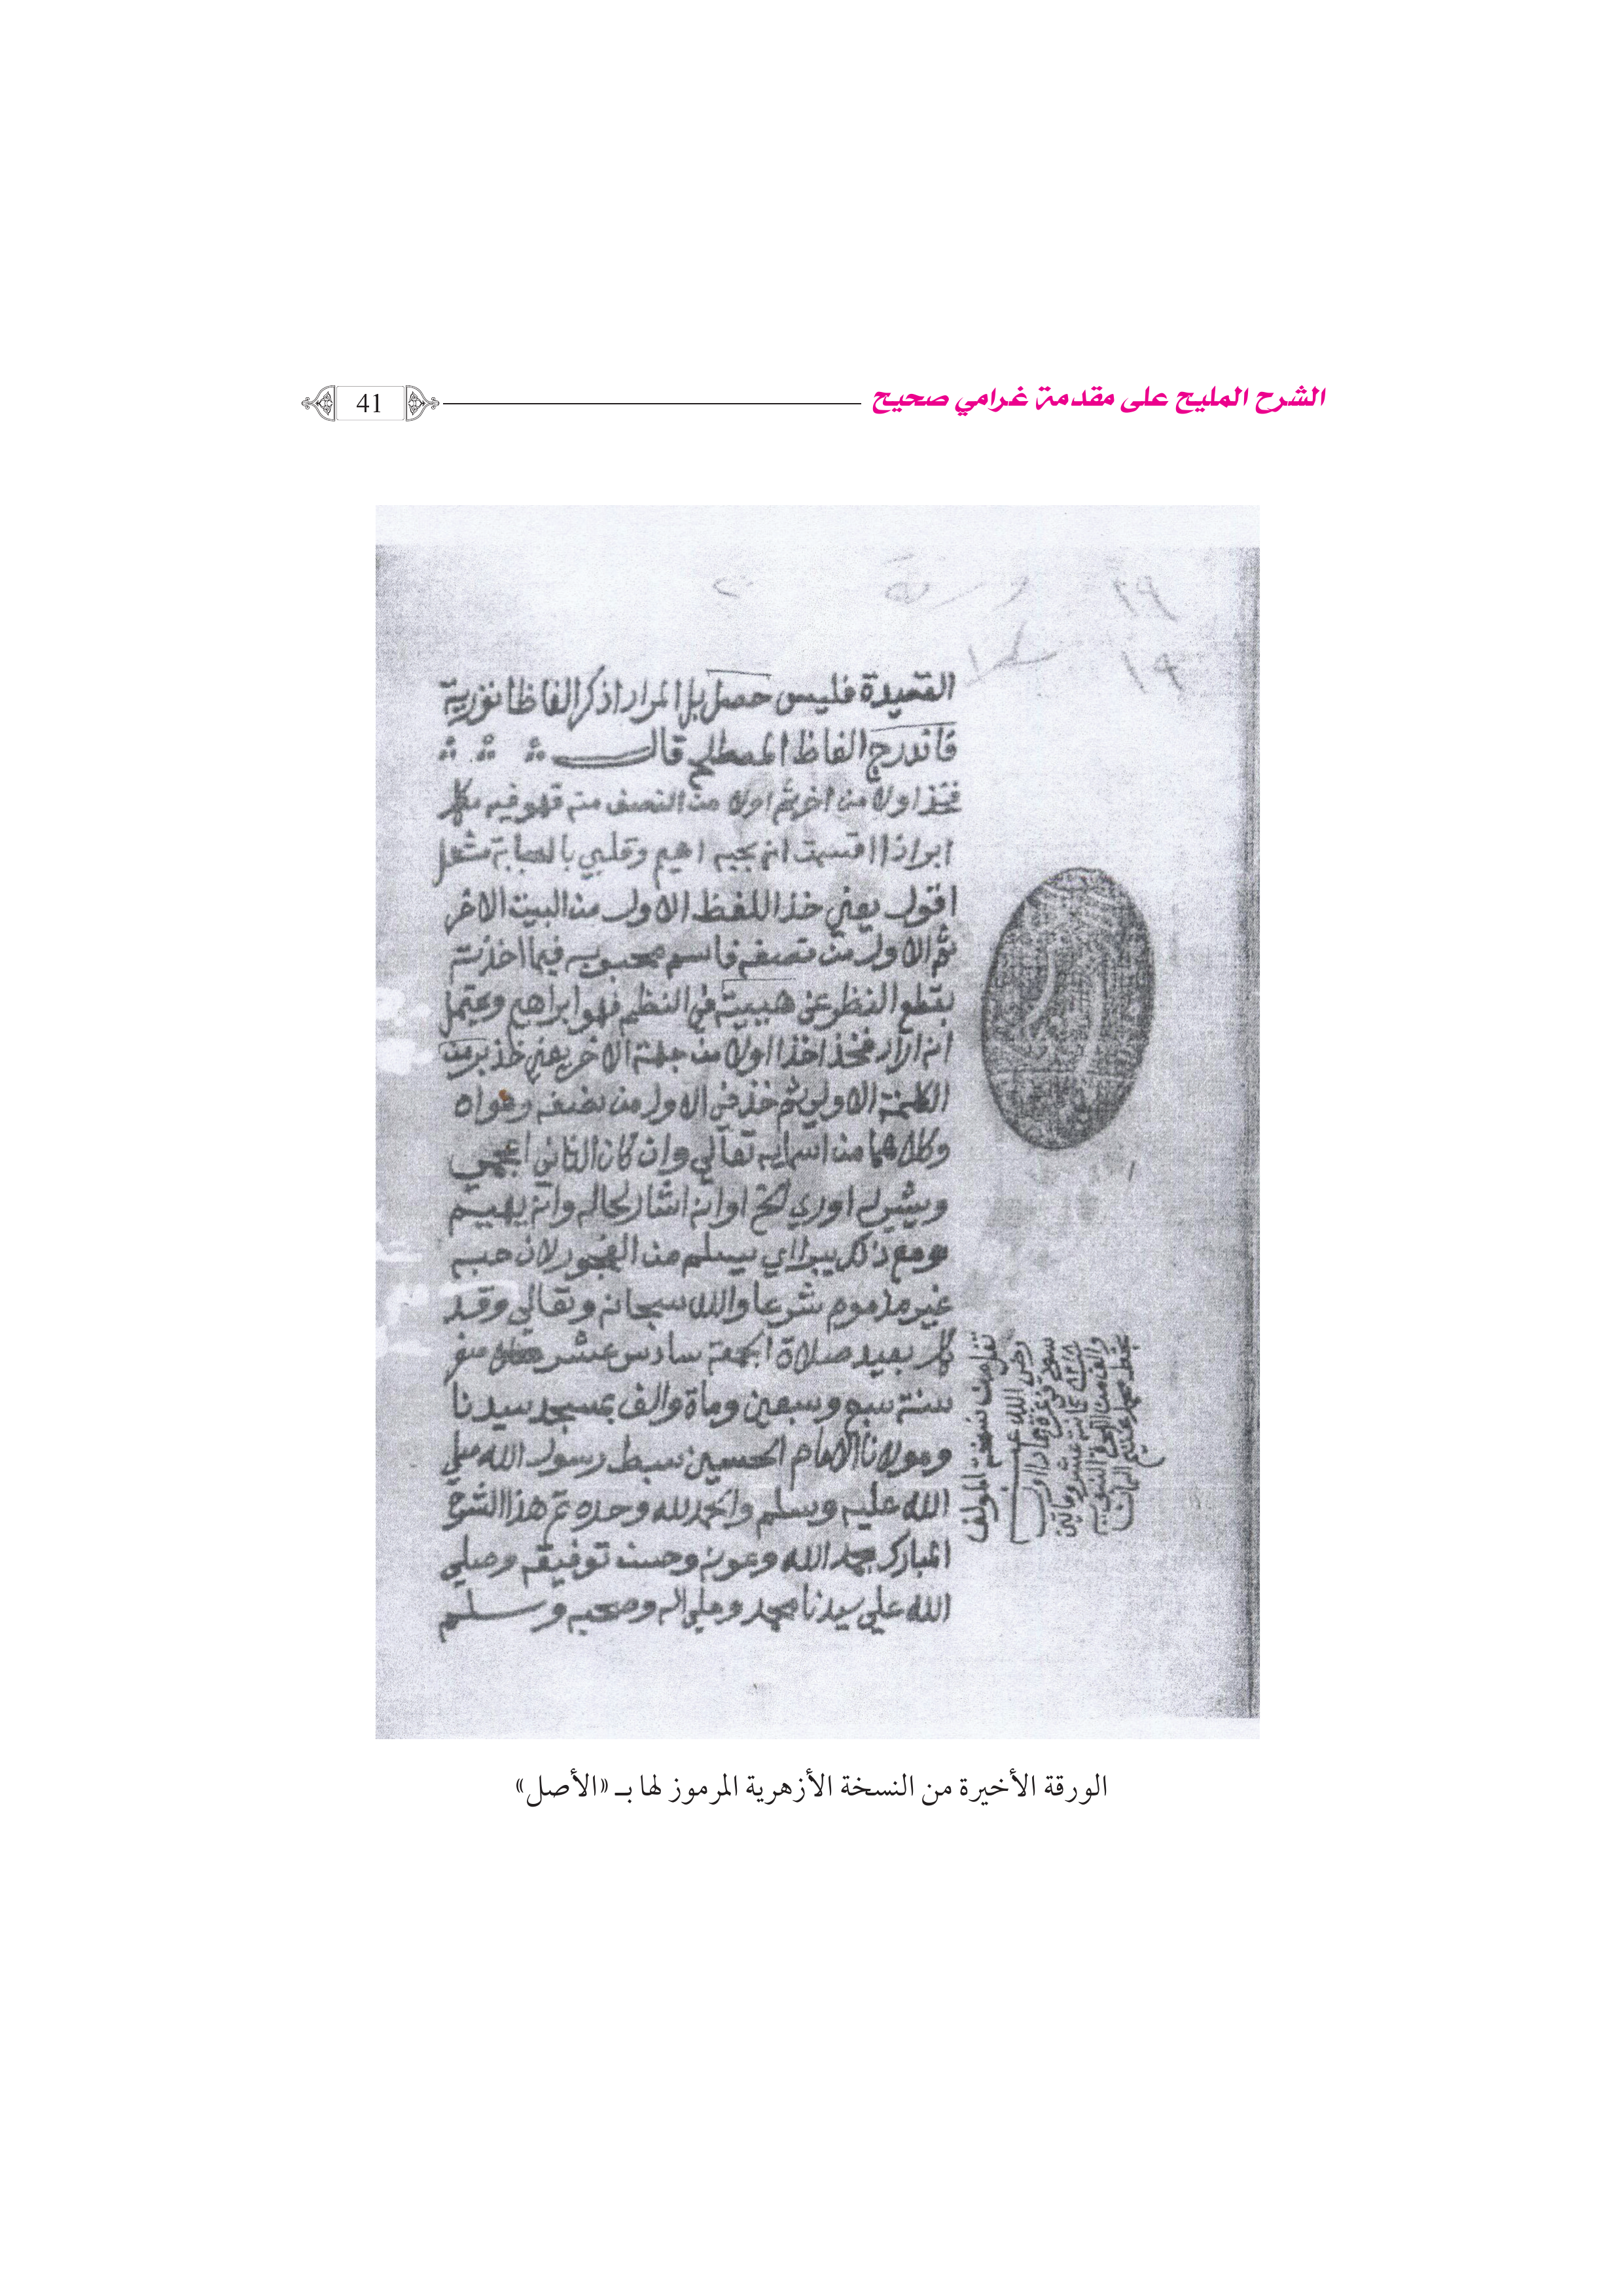 الشرح المليح على مقدمة غرامي صحيح
41
٢٩ ورقة
١٩ سطرا
القصيدة فليس حصل بل المراد اذكر الفاظا تورية
فاندرج الفاظ المصطلح قال
فخذ اولا من اخر ثم اولا من النصف منه فهو فيه مكمل
ابر اذا اقسمت انى بحبه اهيم وقلبي بالصبابة مشعل
اقول يعني خذ اللفظ الاول من البيت الاخر
ثم الاول من نصفه فاسم محبوبه فيما اخذته
بقطع النظر عن هيبته في النظم فهو ابراهيم ويحتمل
انه اراد فخذ اخذا اولا من جهة الاخر يعني خذ بر من
الكلمة الاولي ثم خذ في الاول من نصفه وهواه
وكلاهما من اسمايه تعالي وان كان الثاني اعجمي
ويشير له اوري الخ او انه اشار لحاله وانه يهيم
ومع ذلك يبرا اي يسلم من الفجور لان حبه
غير مذموم شرعا والله سبحانه وتعالي وقد
كمل بعيد صلاة الجمعة سادس عشر صفر
سنة سبع وسبعين وماة والف بمسجد سيدنا
ومولانا الامام الحسين سبط رسول الله صلي
الله عليه وسلم والحمد لله وحده تم هذا الشرح
المبارك بحمد الله وعونه وحسن توفيقه وصلي
الله علي سيدنا محمد وعلي اله وصحبه وسلم
نقل من نسخة المولف
رضي الله عنه
الورقة الأخيرة من النسخة الأزهرية المرموز لها بـ «الأصل»